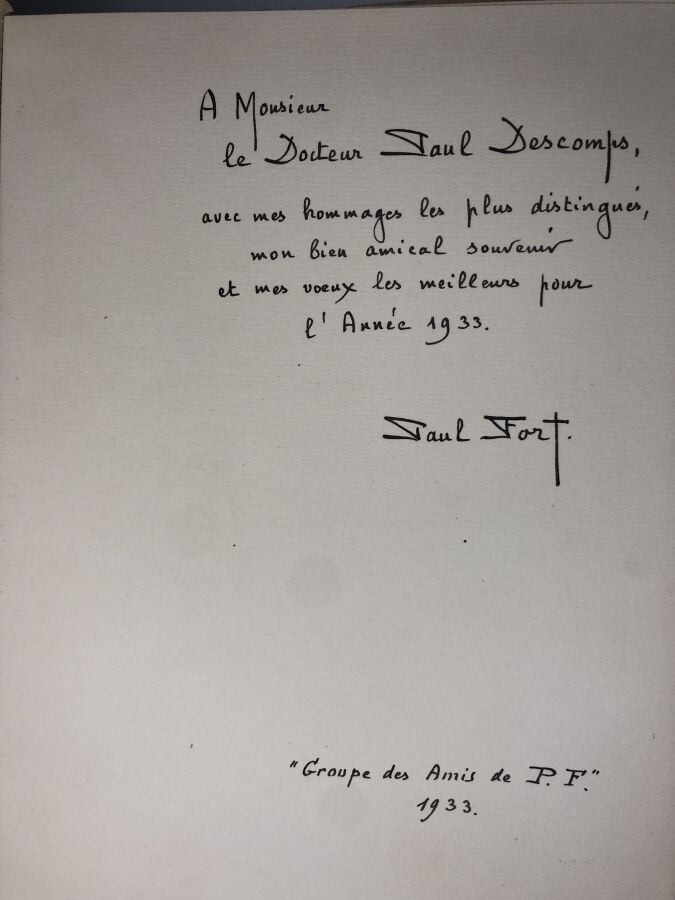 A Monsieur
le Docteur Paul Descomps,
avec mes hommages les plus distingués,
mon bien amical souvenir
et mes voeux les meilleurs pour
l'Année 1933.
Paul Fort.
"Groupe des Amis de P. F."
1933.